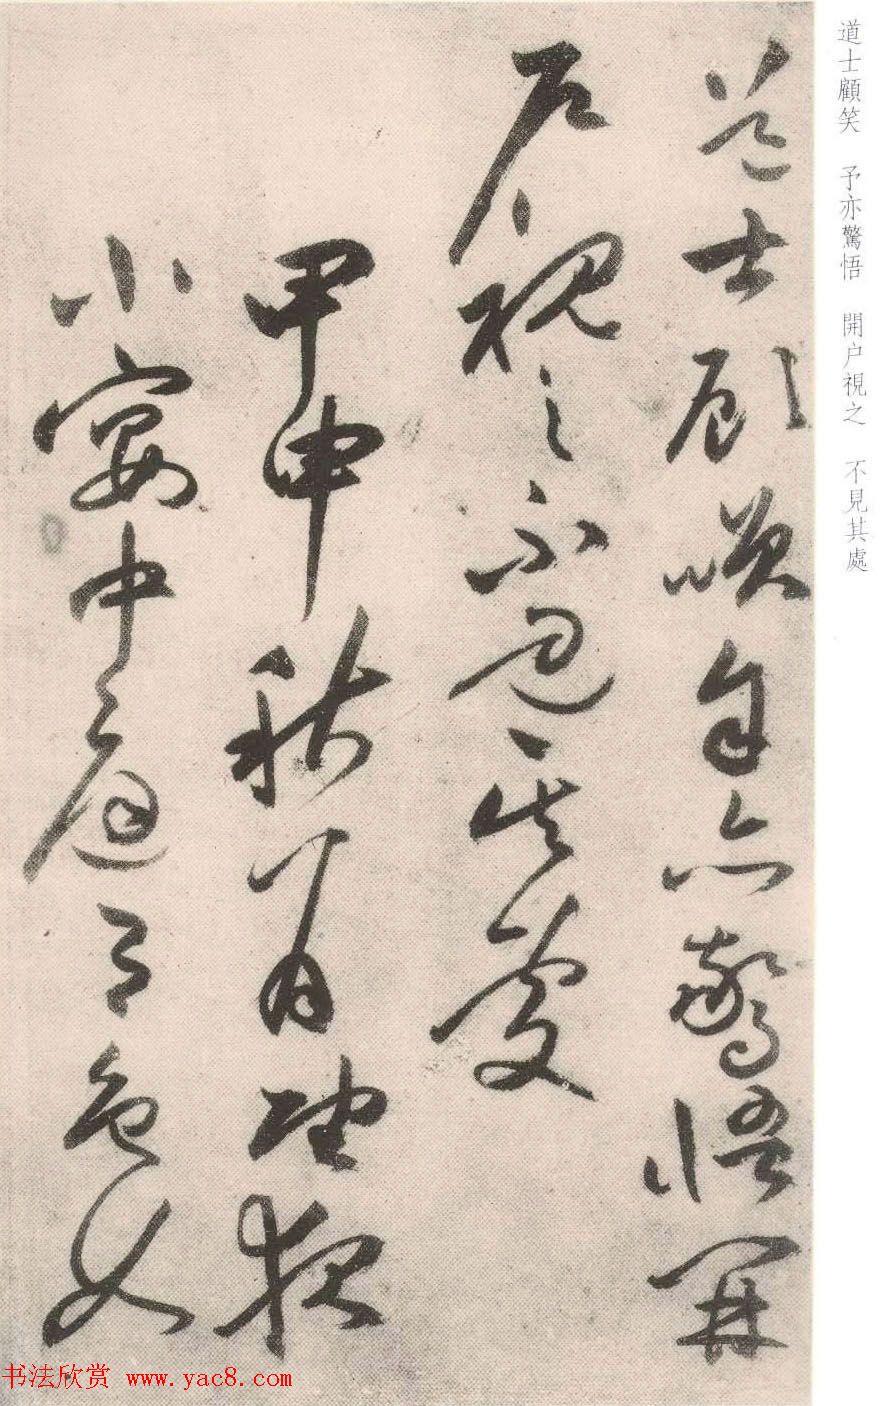 道士顧笑 予亦驚悟 開户視之 不見其處
道士顧咲予亦驚悟開
户視之不見其處
甲申秋八月望夜
小宴中庭有色女
书法欣赏 www.yac8.com